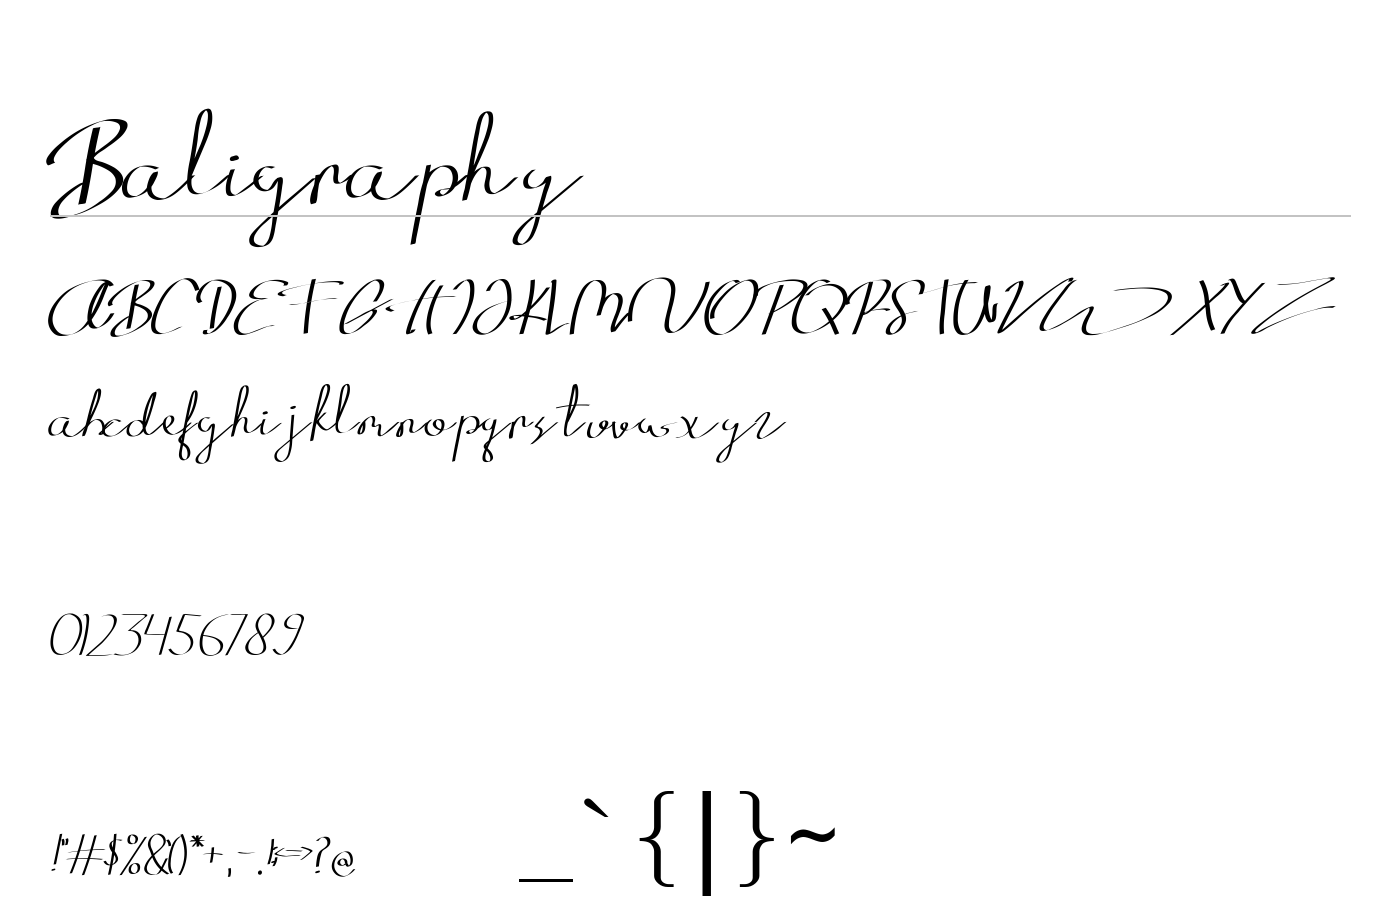 Baligraphy
ABCDEFGHIJKLMNOPQRSTUVWXYZ
abcdefghijklmnopqrstuvwxyz
0123456789
!"#$%&'()*+,-./:;<=>?@ _`{|}~